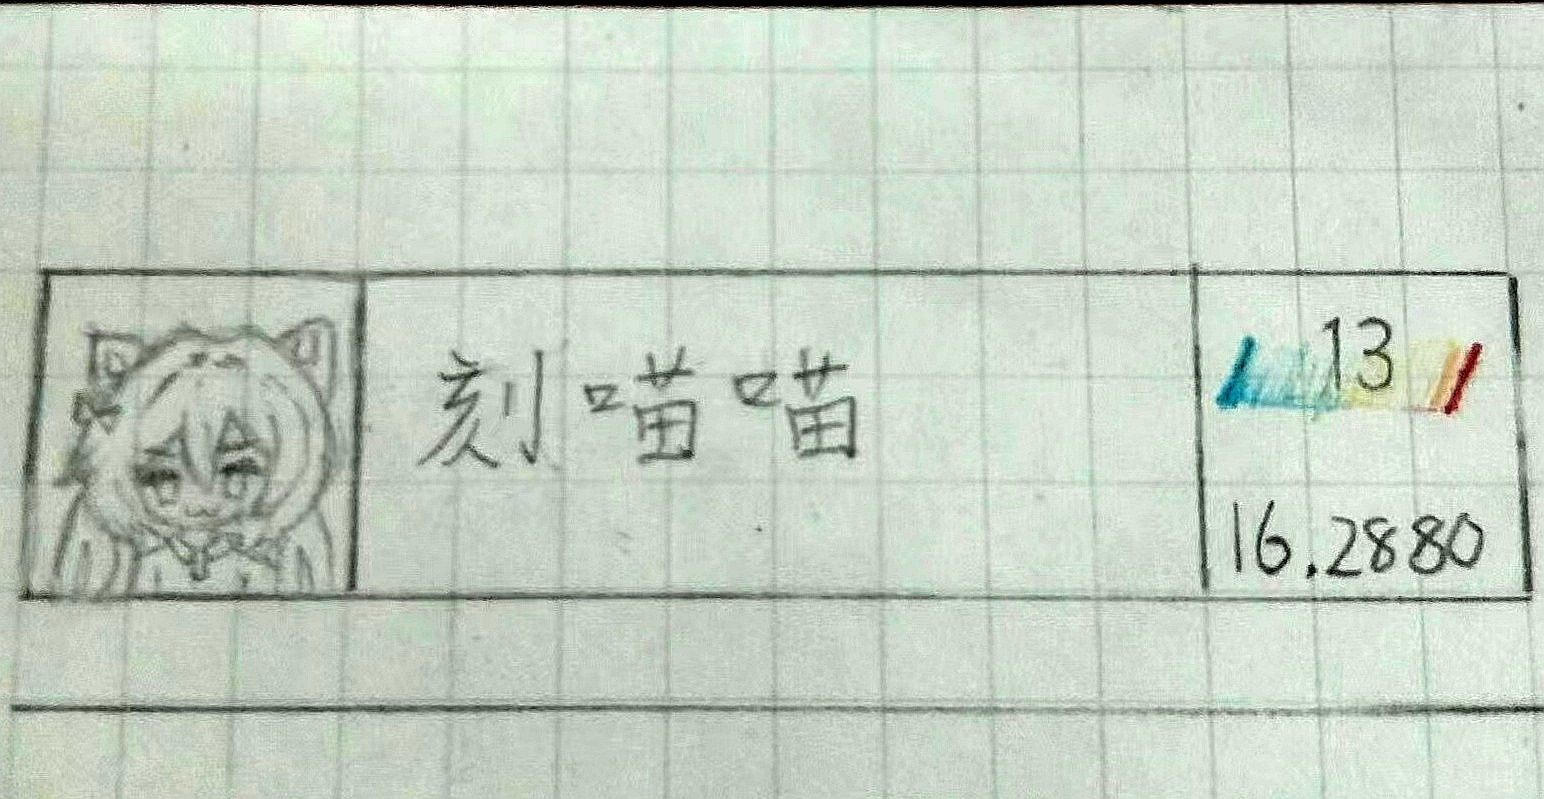 刻喵喵
13
16.2880